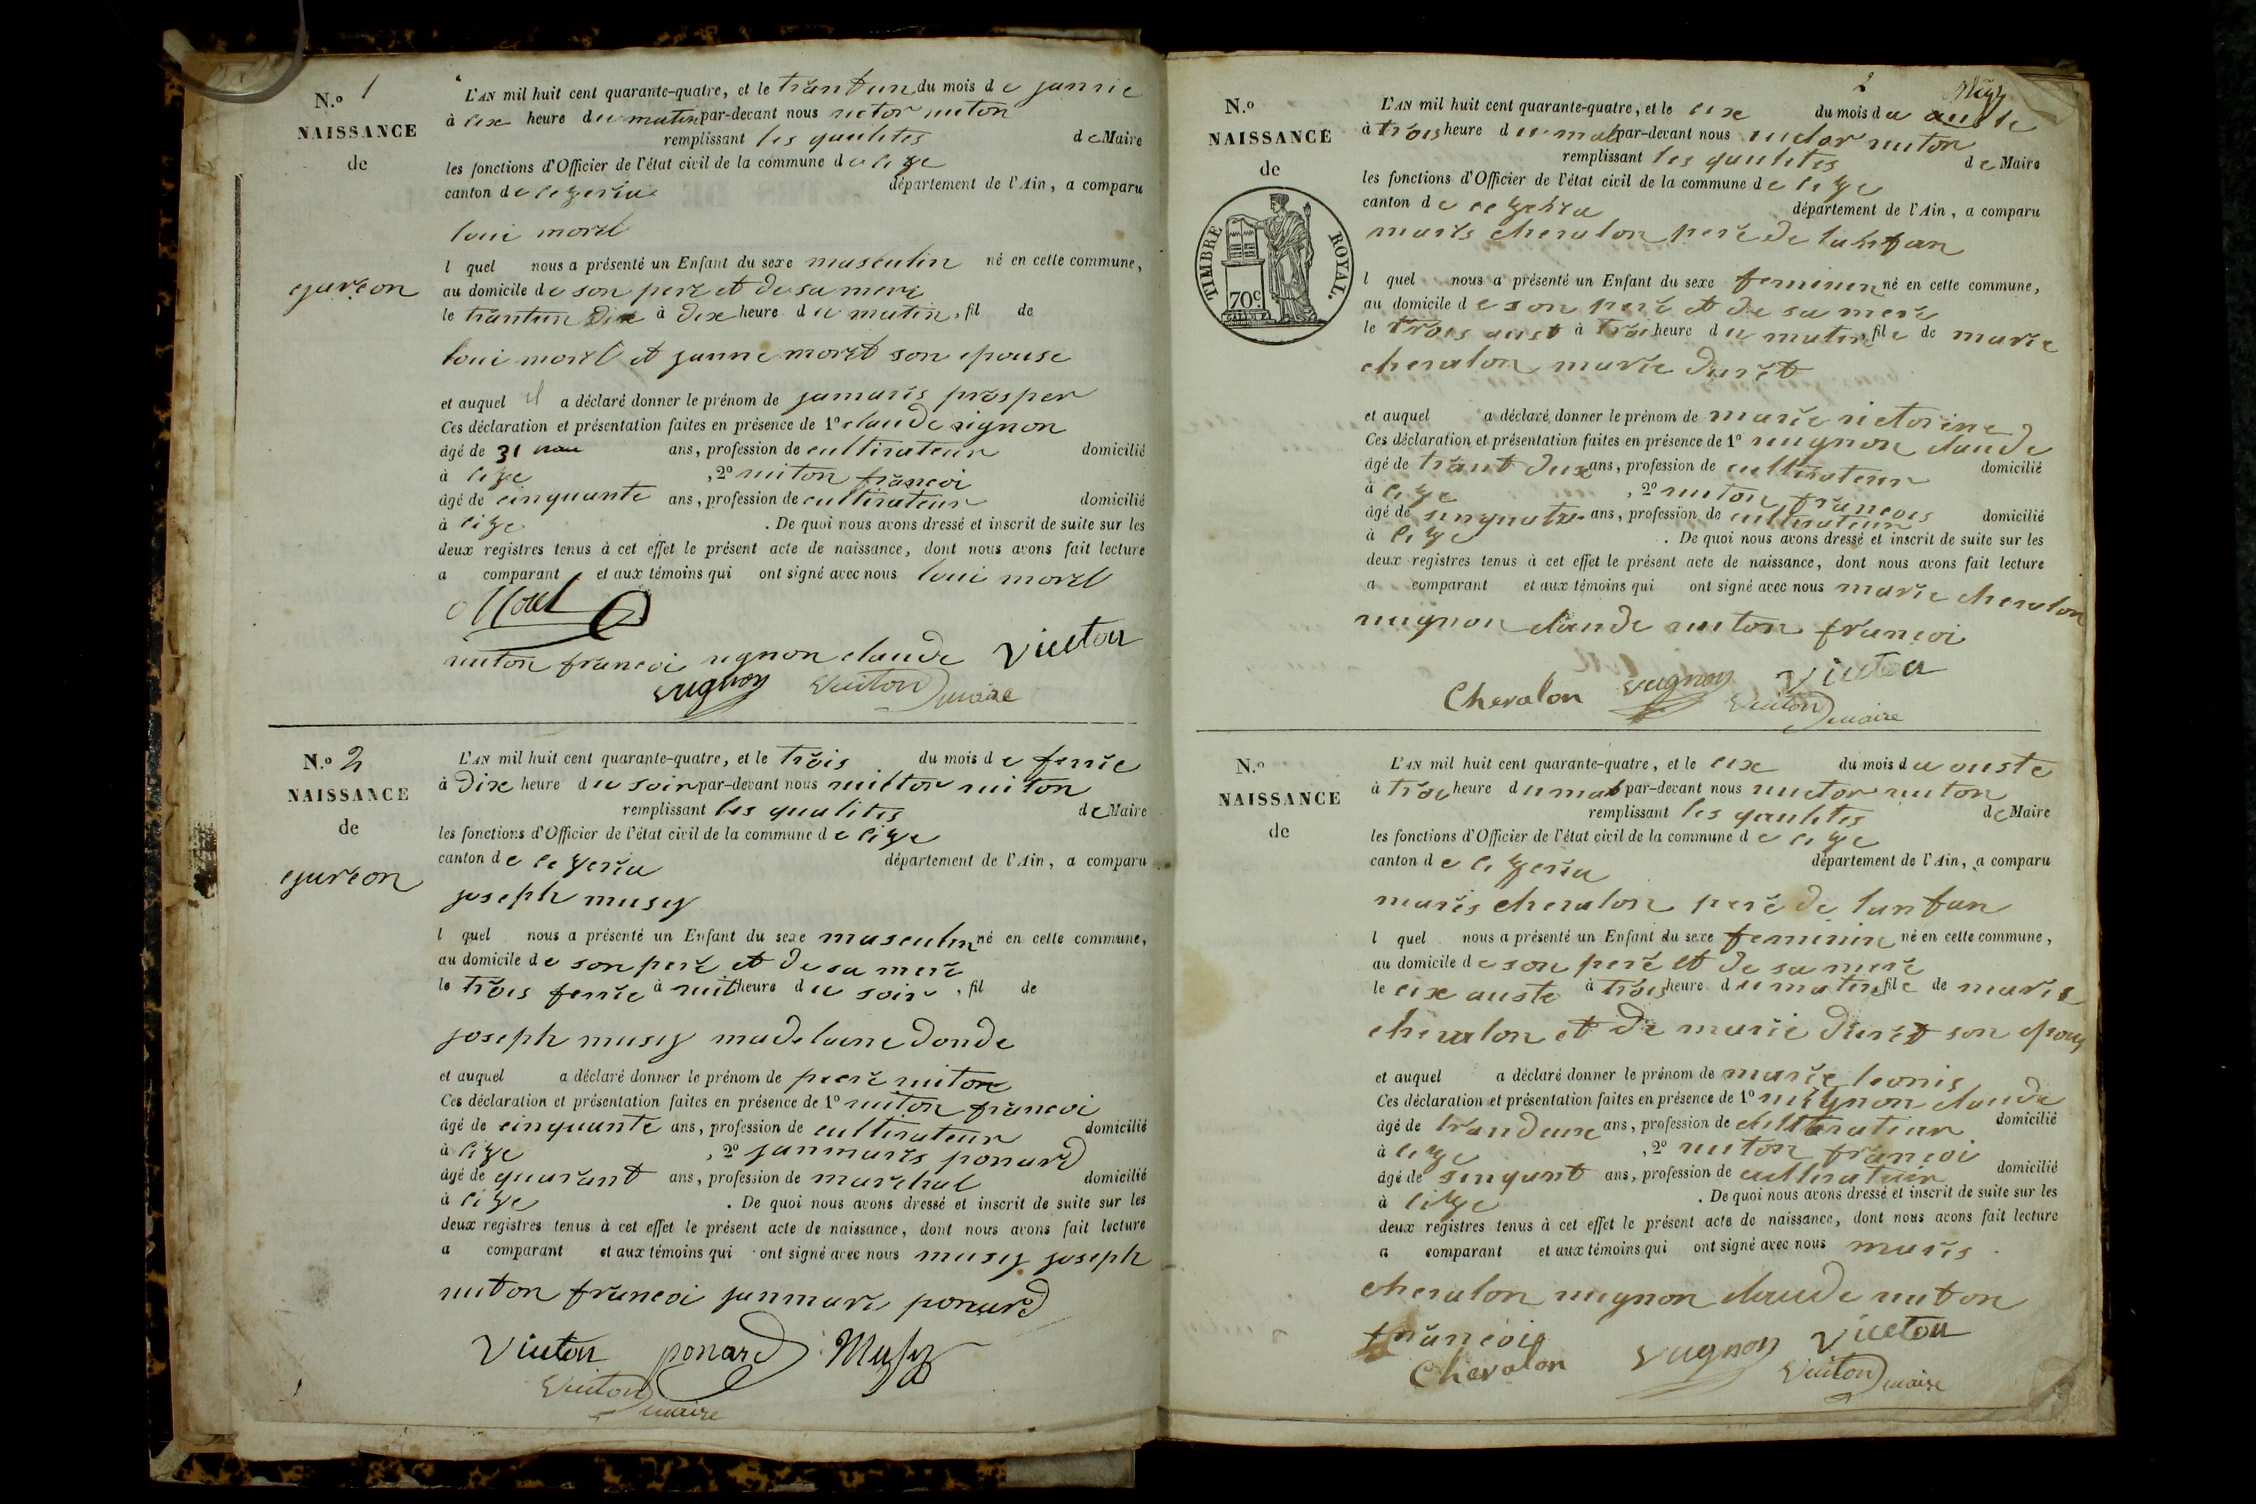 N.o 1
NAISSANCE
de
garcon
L'AN mil huit cent quarante-quatre, et le trantun du mois de janvie
à six heure du matin par-devant nous victor vuiton
remplissant les qualites de Maire
les fonctions d'Officier de l'état civil de la commune de
canton de département de l'Ain, a comparu
loui morel
l quel nous a présenté un Enfant du sexe masculin né en cette commune,
au domicile de son pere et de sa mere
le trantun à dix heure du matin, fil de
loui morel et janne moret son epouse
et auquel il a déclaré donner le prénom de jamaris prosper
Ces déclaration et présentation faites en présence de 1o claude vignon
âgé de 31 ans, profession de cultivateur domicilié
à , 2o vuiton francoi
âgé de cinquante ans, profession de cultivateur domicilié
à . De quoi nous avons dressé et inscrit de suite sur les
deux registres tenus à cet effet le présent acte de naissance, dont nous avons fait lecture
a comparant et aux témoins qui ont signé avec nous loui morel
Morel
vuiton francoi vignon claude Viuton
Vugnon Vuiton maire
N.o 2
NAISSANCE
de
garcon
L'AN mil huit cent quarante-quatre, et le trois du mois de fevrie
à dix heure du soir par-devant nous victor vuiton
remplissant les qualites de Maire
les fonctions d'Officier de l'état civil de la commune de
canton de département de l'Ain, a comparu
joseph musy
l quel nous a présenté un Enfant du sexe masculin né en cette commune,
au domicile de son pere et de sa mere
le trois fevrie à heure du soir, fil de
joseph musy madelaine donde
et auquel a déclaré donner le prénom de
Ces déclaration et présentation faites en présence de 1o vuiton francoi
âgé de cinquante ans, profession de cultivateur domicilié
à , 2o janmaris ponard
âgé de quarant ans, profession de marchal domicilié
à . De quoi nous avons dressé et inscrit de suite sur les
deux registres tenus à cet effet le présent acte de naissance, dont nous avons fait lecture
a comparant et aux témoins qui ont signé avec nous musy joseph
vuiton francoi janmari ponard
Viuton ponard Musy
Vuiton maire
2
N.o
NAISSANCE
de
TIMBRE ROYAL.
70c.
L'AN mil huit cent quarante-quatre, et le six du mois de
à trois heure du mat par-devant nous victor vuiton
remplissant les qualites de Maire
les fonctions d'Officier de l'état civil de la commune de
canton de département de l'Ain, a comparu
maris chevalon pere de
l quel nous a présenté un Enfant du sexe feminin né en cette commune,
au domicile de son pere et de sa mere
le trois aust à trois heure du matin, file de marie
chevalon marie duret
et auquel a déclaré donner le prénom de marie victorine
Ces déclaration et présentation faites en présence de 1o vuignon claude
âgé de trant deux ans, profession de cultivateur domicilié
à , 2o vuiton francois
âgé de ans, profession de cultivateur domicilié
à . De quoi nous avons dressé et inscrit de suite sur les
deux registres tenus à cet effet le présent acte de naissance, dont nous avons fait lecture
a comparant et aux témoins qui ont signé avec nous marie chevalon
vuignon claude vuiton francoi
Chevalon Vugnon Viuton
Vuiton maire
N.o
NAISSANCE
de
L'AN mil huit cent quarante-quatre, et le six du mois de ouste
à heure du mat par-devant nous victor vuiton
remplissant les qualites de Maire
les fonctions d'Officier de l'état civil de la commune de
canton de département de l'Ain, a comparu
maris chevalon pere de lanfan
l quel nous a présenté un Enfant du sexe feminin né en cette commune,
au domicile de son pere et de sa mere
le six auste à trois heure du matin, file de maris
chevalon et de marie duret son epous
et auquel a déclaré donner le prénom de marie leonis
Ces déclaration et présentation faites en présence de 1o vuignon claude
âgé de trandeux ans, profession de cultivateur domicilié
à , 2o vuiton francoi
âgé de sinqant ans, profession de cultivatuir domicilié
à . De quoi nous avons dressé et inscrit de suite sur les
deux registres tenus à cet effet le présent acte de naissance, dont nous avons fait lecture
a comparant et aux témoins qui ont signé avec nous maris
chevalon vuignon claude vuiton
francois
Chevalon Vugnon Viuton
Vuiton maire